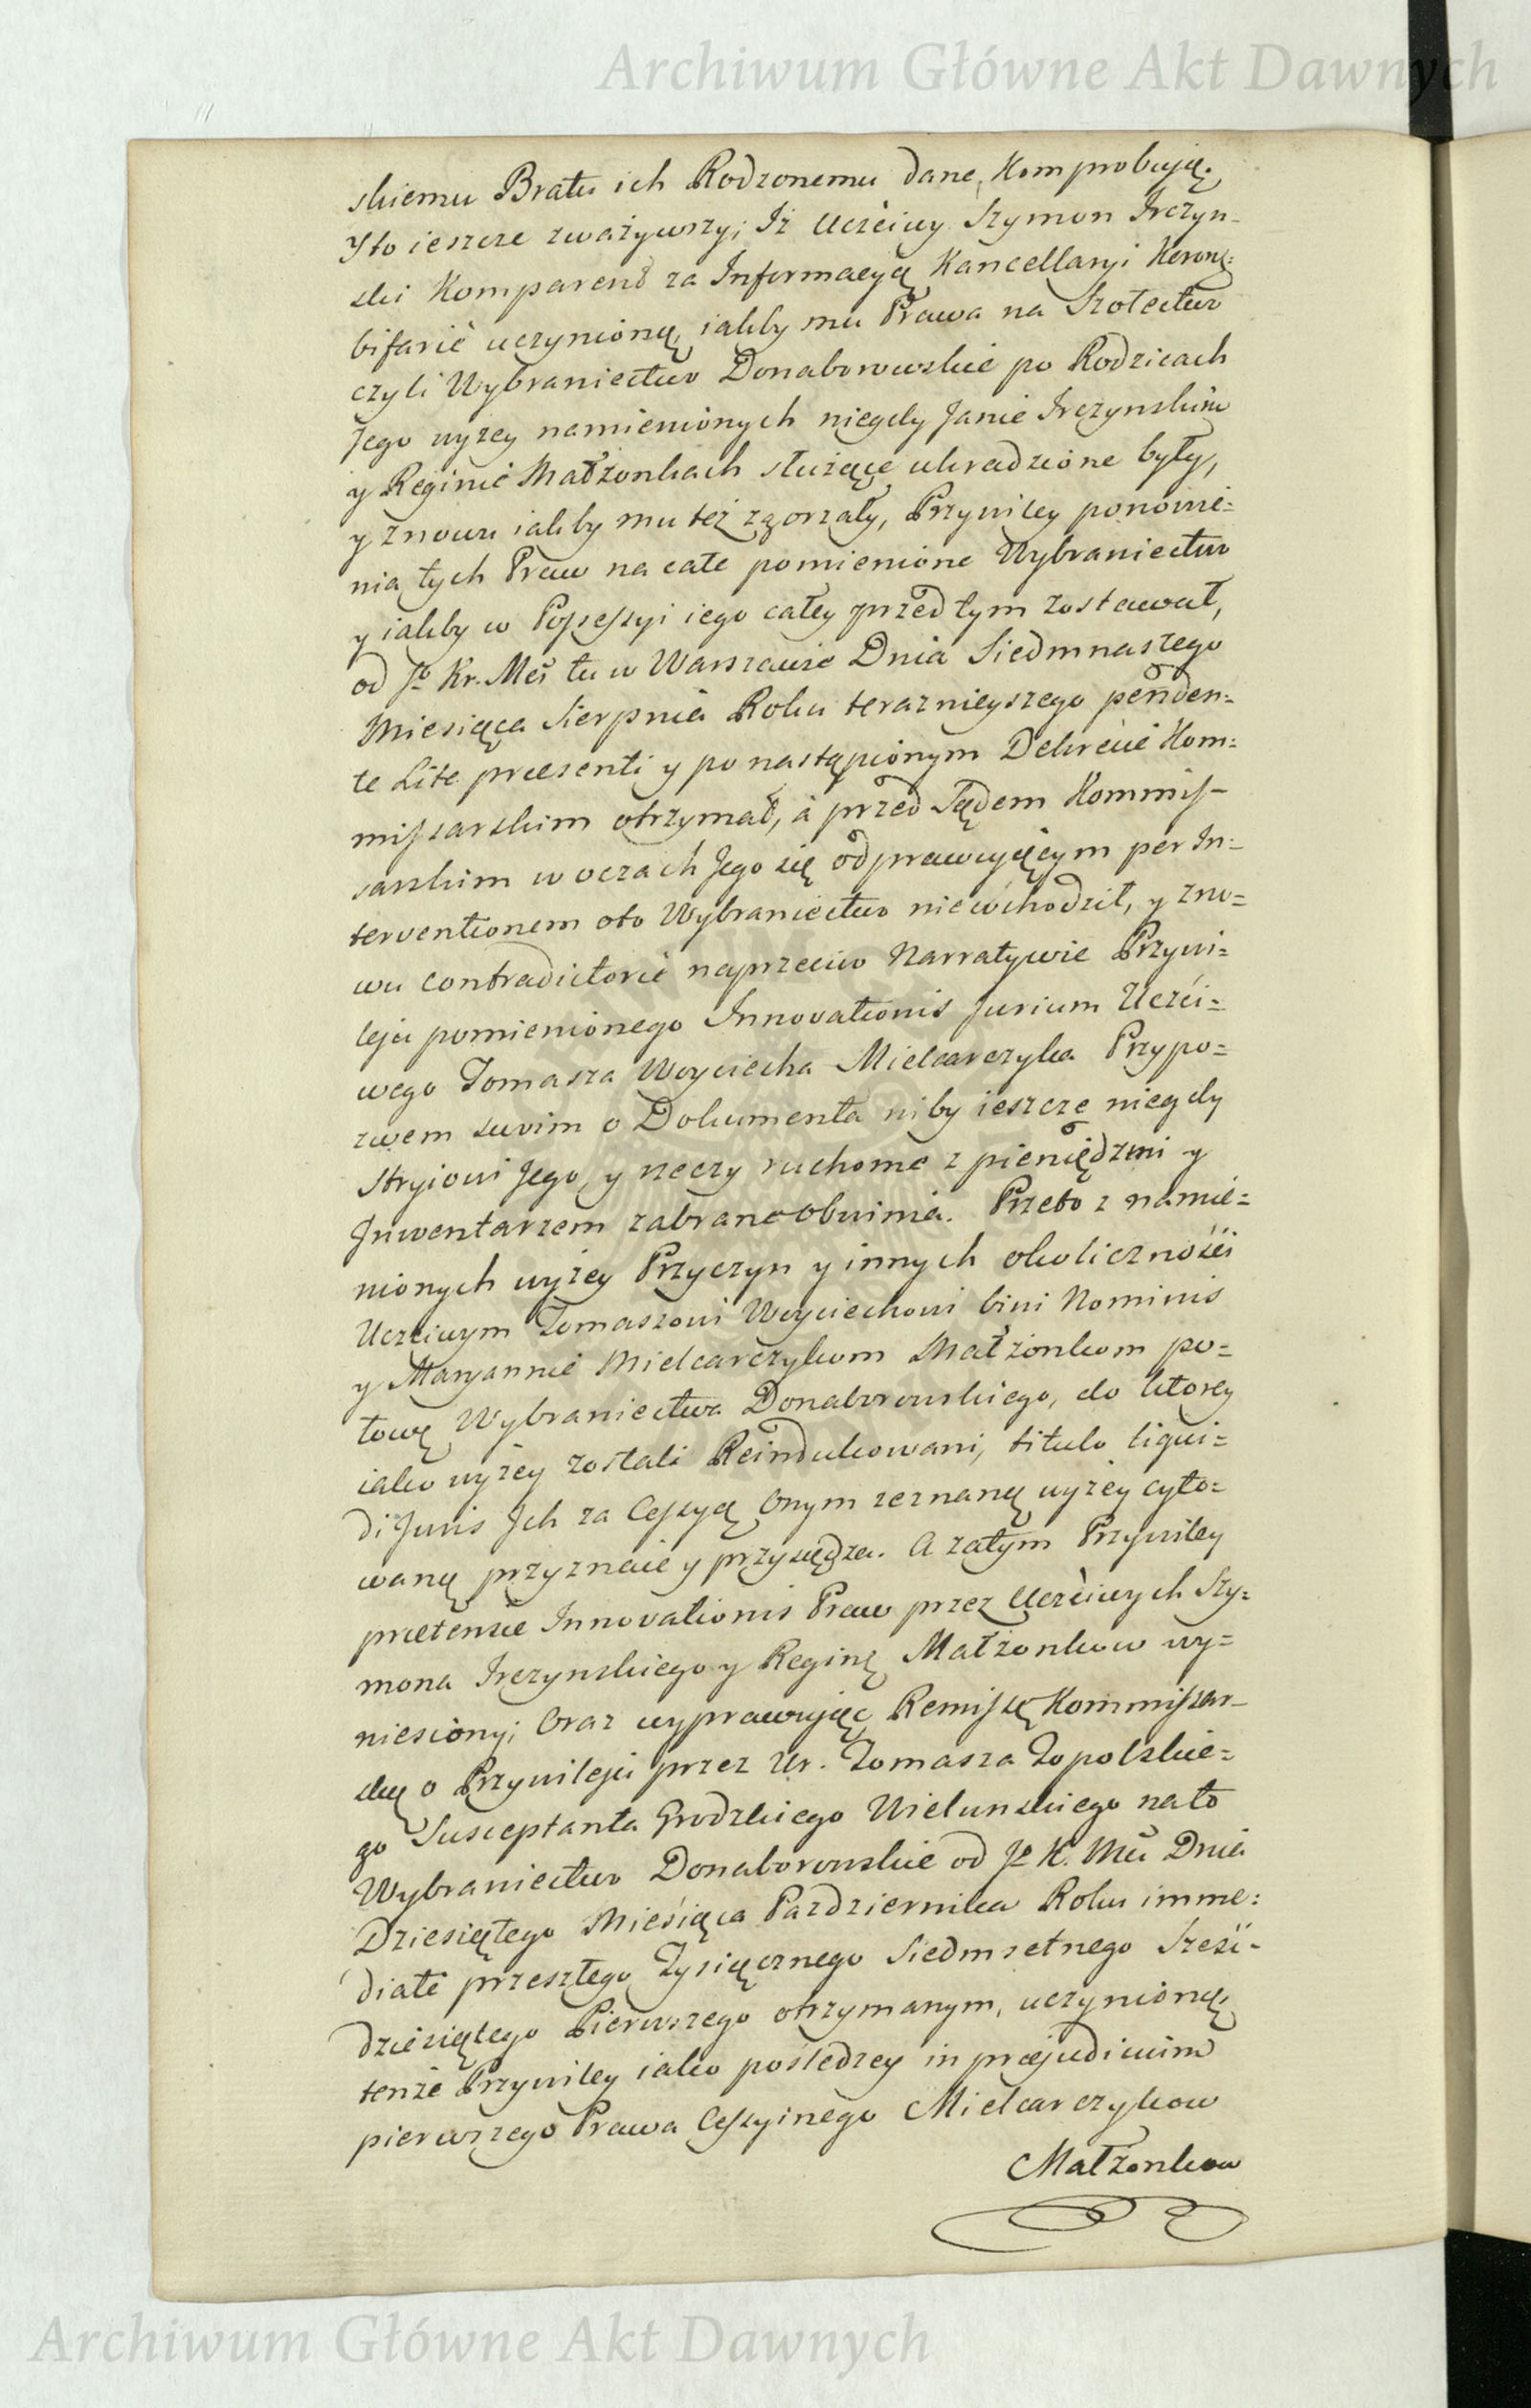 Archiwum Główne Akt Dawnych
skiemu Bratu ich Rodzonemu dane, Komprobują.
Yto ieszcze zważywszy; Iż Uczciwy Szymon Irczyn-
ski Komparens za Informacyą Kancellaryi Koronę:
bifarie uczynioną, iakby mu Prawa na Szołectwo
czyli Wybraniectwo Donaborowskie po Rodzicach
Jego wyżey namienionych niegdy Janie Irczynskim
y Reginie Małżonkach służące ukradzione były,
y znowu iakby mu też zgorzały, Przywiley ponowie=
nia tych Praw na całe pomienione Wybraniectwo
y iakby w Possessyi iego całey przed tym zostawał,
od Jo Kr. Mci tu w Warszawie Dnia Siedmnastego
Miesiąca Sierpnia Roku teraznieyszego penden=
te Lite praesenti y po nastąpionym Dekrecie Kom=
missarskim otrzymał, à przed Sądem Kommis-
sarskim w oczach Jego się odprawującym per In=
terventionem oto Wybraniectwo niewchodził, y zno=
wu contradictorie naprzeciw Narratywie Przywi=
leju pomienionego Innovationis Jurium Uczci=
wego Tomasza Woyciecha Mielcarczyka Przypo=
zwem swoim o Dokumenta niby ieszcze niegdy
Stryiowi Jego, y rzeczy ruchome z pieniędzmi y
Inwentarzem zabrane obwinia. Przeto z namie=
nionych wyżey Przyczyn y innych okoliczności
Uczciwym Tomaszowi Woyciechowi bini Nominis
y Maryannie Mielcarczykom Małżonkom po=
łowę Wybraniectwa Donaborowskiego, do ktorey
iako wyżey zostali Reindukowani, titulo liqui=
di Juris Ich za Cessyą Onym zeznaną wyżey cyto=
waną przyznaie y przysądza. A zatym Przywiley
praetensae Innovationis Praw przez Uczciwych Szy=
mona Irczynskiego y Reginę Małżonkow wy=
niesiony; Oraz wyprawując Remissę Kommissar-
ską o Przywileju przez Ur. Tomasza Topolskie=
go Susceptanta Grodzkiego Wielunskiego nato
Wybraniectwo Donaborowskie od Jo K. Mci Dnia
Dziesiątego Miesiąca Pazdziernika Roku imme:
diate przeszłego Tysiącznego Siedmsetnego Sześć-
dziesiątego Pierwszego otrzymanym, uczynioną,
tenże Przywiley iako pośledzey in praejudicium
pierwszego Prawa Cessyinego Mielcarczykow
Małżonkow
Archiwum Główne Akt Dawnych